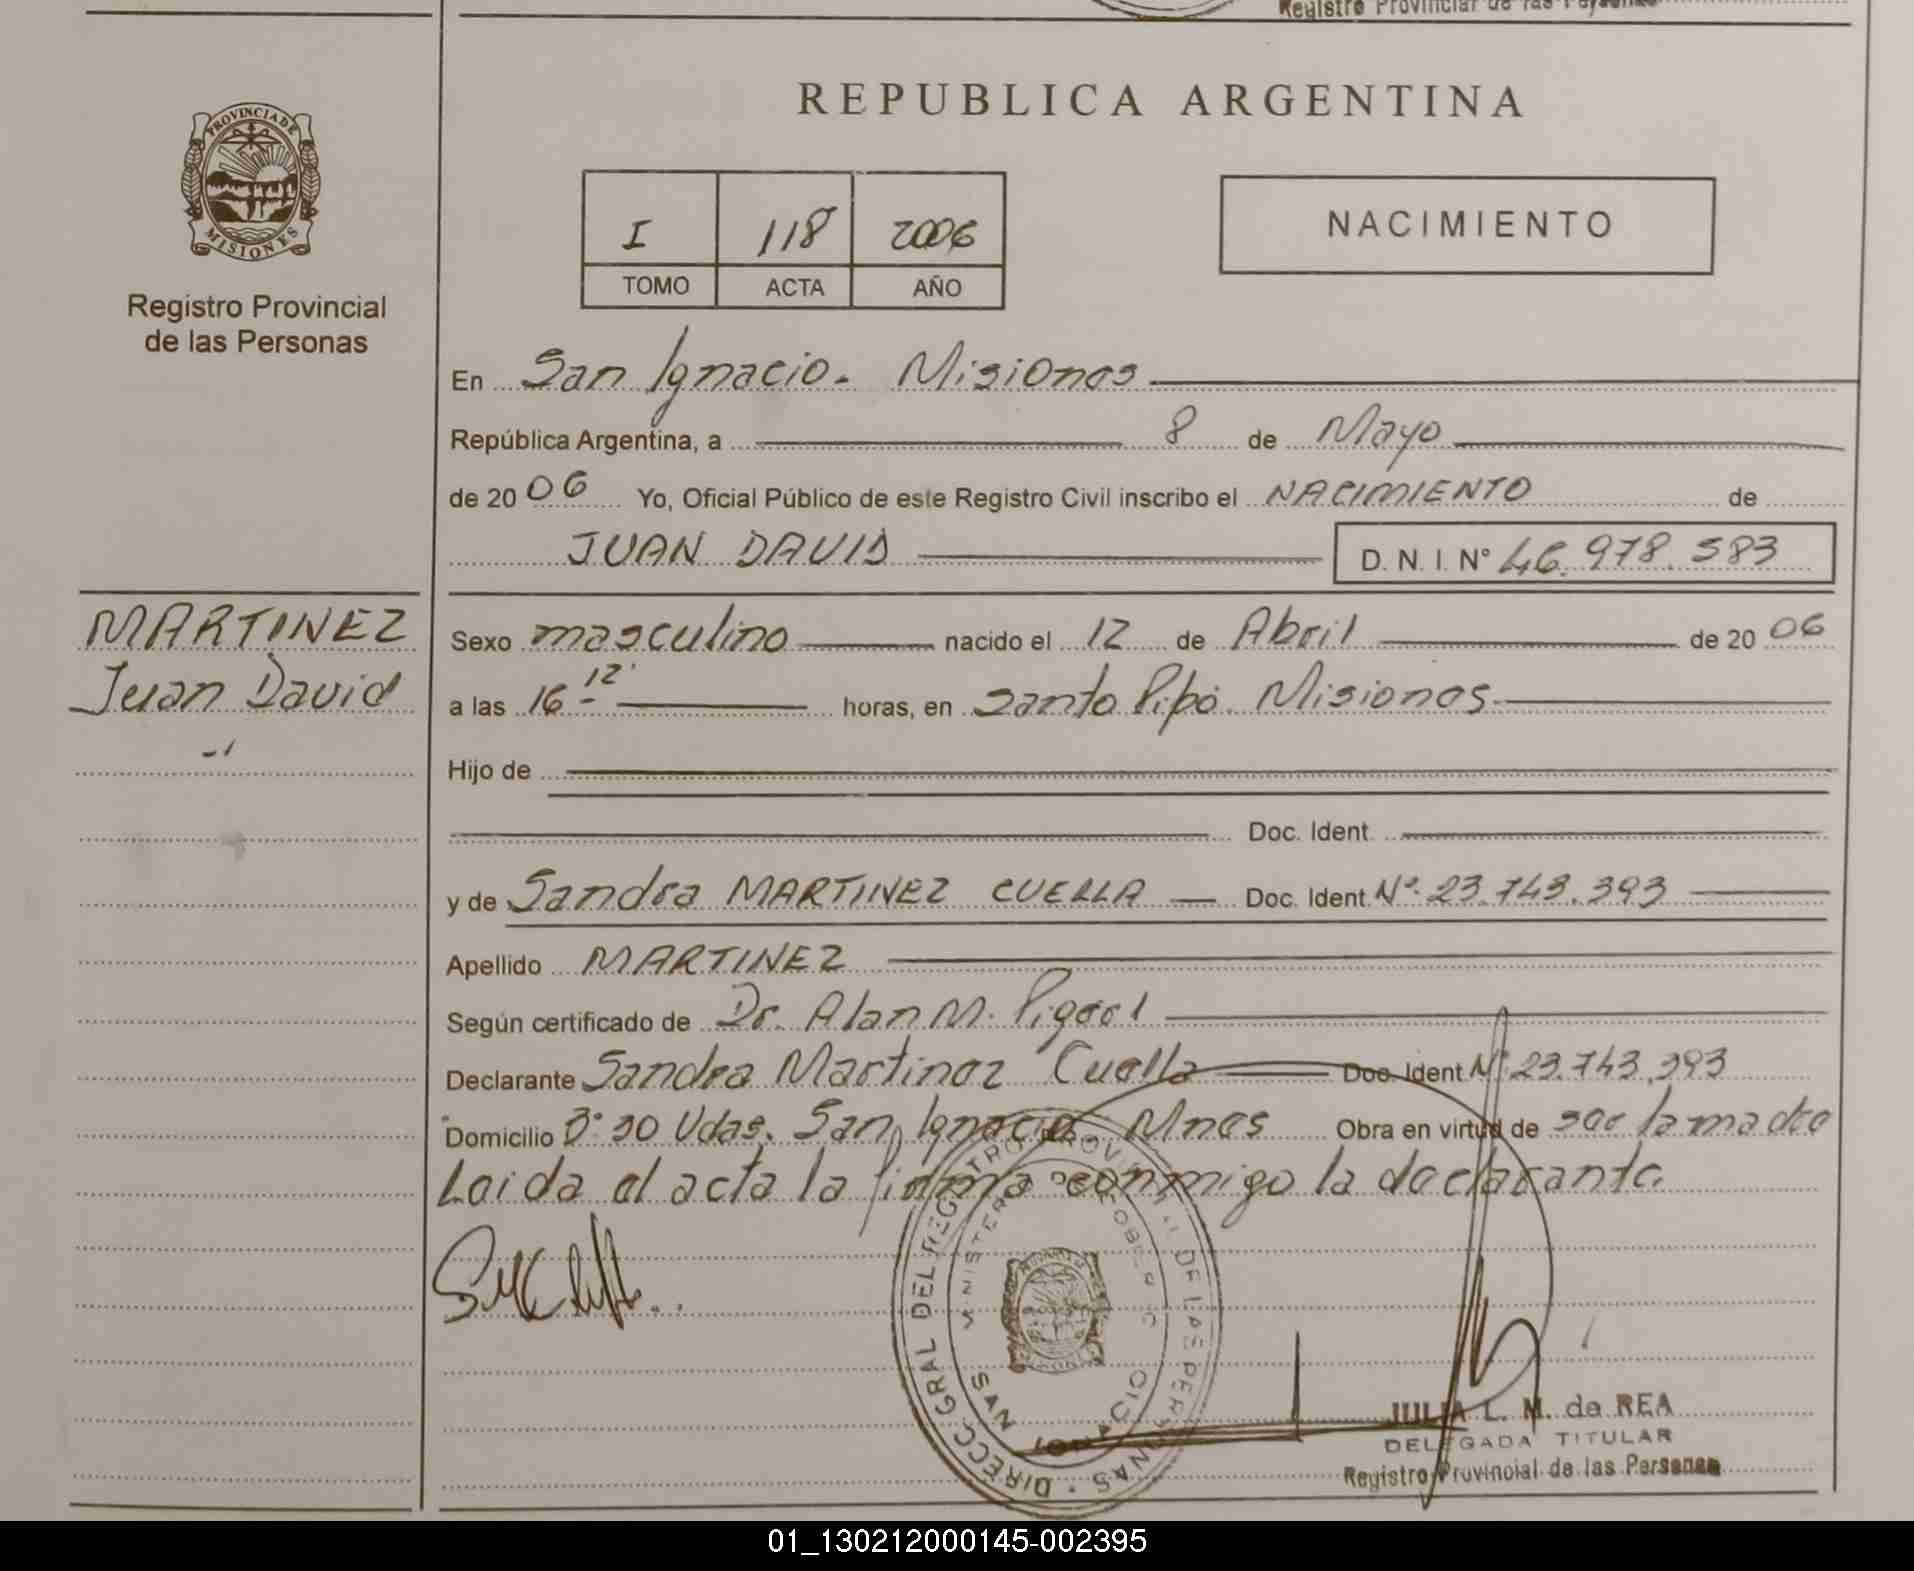 Registro Provincial de las Personas
REPUBLICA ARGENTINA
PROVINCIA DE MISIONES
Registro Provincial
de las Personas
I 118 2006
TOMO ACTA AÑO
NACIMIENTO
En San Ignacio - Misiones
República Argentina, a 8 de Mayo
de 20 06 Yo, Oficial Público de este Registro Civil inscribo el NACIMIENTO de
JUAN DAVID D. N. I. N° 46.978.583
MARTINEZ
Juan David
Sexo masculino nacido el 12 de Abril de 20 06
a las 16 - 12' horas, en Santo Pipó. Misiones
Hijo de
Doc. Ident.
y de Sandra MARTINEZ CUELLA Doc. Ident Nº. 23.743.393
Apellido MARTINEZ
Según certificado de Dr. Alan M.
Declarante Sandra Martinez Cuella Doc. Ident Nº 23.743.393
Domicilio Bº 30 Vdas. San Ignacio Mnes Obra en virtud de ser la madre
Leida el acta la firma conmigo la declarante.
DIRECC. GRAL DEL REGISTRO PROVINCIAL DE LAS PERSONAS
JULIA L. M. de REA
DELEGADA TITULAR
Registro Provincial de las Personas
01_130212000145-002395